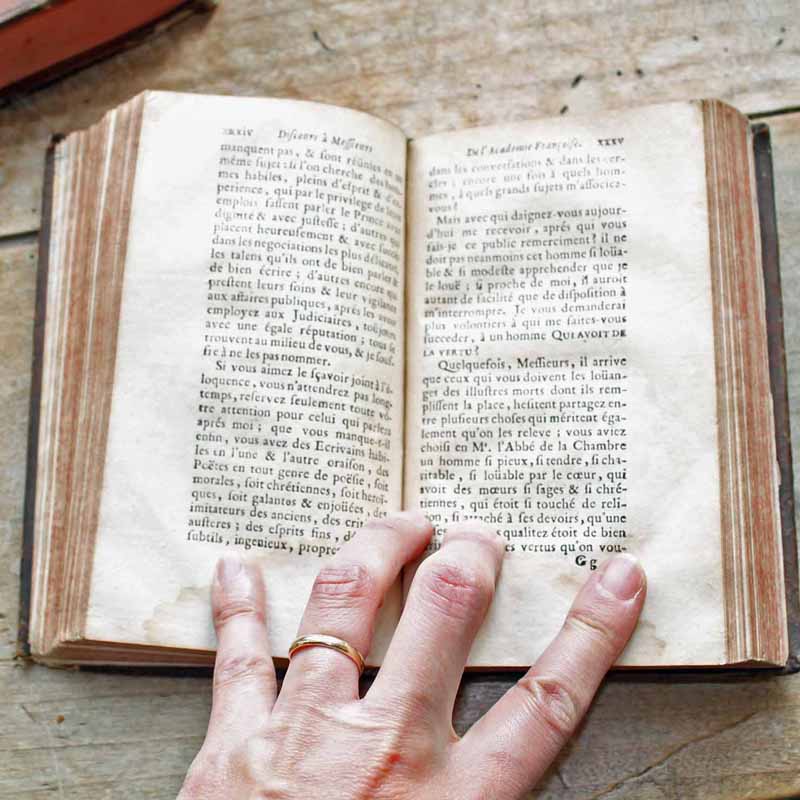 xxxiv Discours à Messieurs
manquent pas, & sont réünies en un
même sujet: si l'on cherche des hom-
mes habiles, pleins d'esprit & d'ex-
perience, qui par le privilege de leurs
emplois fassent parler le Prince avec
dignité & avec justesse; d'autres qui
placent heureusement & avec succés
dans les negociations les plus délicates,
les talens qu'ils ont de bien parler &
de bien écrire; d'autres encore qui
prestent leurs soins & leur vigilance
aux affaires publiques, aprés les avoir
employez aux Judiciaires, toûjours
avec une égale réputation; tous se
trouvent au milieu de vous, & je souf-
fre à ne les pas nommer.
Si vous aimez le sçavoir joint à l'é-
loquence, vous n'attendrez pas long-
temps, reservez seulement toute vô-
tre attention pour celui qui parlera
aprés moi; que vous manque-t-il
enfin, vous avez des Ecrivains habi-
les en l'une & l'autre oraison, des
Poëtes en tout genre de poësie, soit
morales, soit chrétiennes, soit heroï-
ques, soit galantes & enjoüées, des
imitateurs des anciens, des criti
austeres; des esprits fins, d
subtils, ingenieux, propre
De l'Academie Françoise. xxxv
dans les conversations & dans les cer-
cles; encore une fois à quels hom-
mes, à quels grands sujets m'associez-
vous?
Mais avec qui daignez-vous aujour-
d'hui me recevoir, aprés qui vous
fais-je ce public remerciment? il ne
doit pas neanmoins cet homme si loüa-
ble & si modeste apprehender que je
le louë; si proche de moi, il auroit
autant de facilité que de disposition à
m'interrompre. Je vous demanderai
plus volontiers à qui me faites-vous
succeder, à un homme QUI AVOIT DE
LA VERTU?
Quelquefois, Messieurs, il arrive
que ceux qui vous doivent les loüan-
ges des illustres morts dont ils rem-
plissent la place, hesitent partagez en-
tre plusieurs choses qui méritent éga-
lement qu'on les releve; vous aviez
choisi en Mr. l'Abbé de la Chambre
un homme si pieux, si tendre, si cha-
ritable, si loüable par le cœur, qui
avoit des mœurs si sages & si chré-
tiennes, qui étoit si touché de reli-
gion, si attaché à ses devoirs, qu'une
ses qualitez étoit de bien
es vertus qu'on vou-
Gg